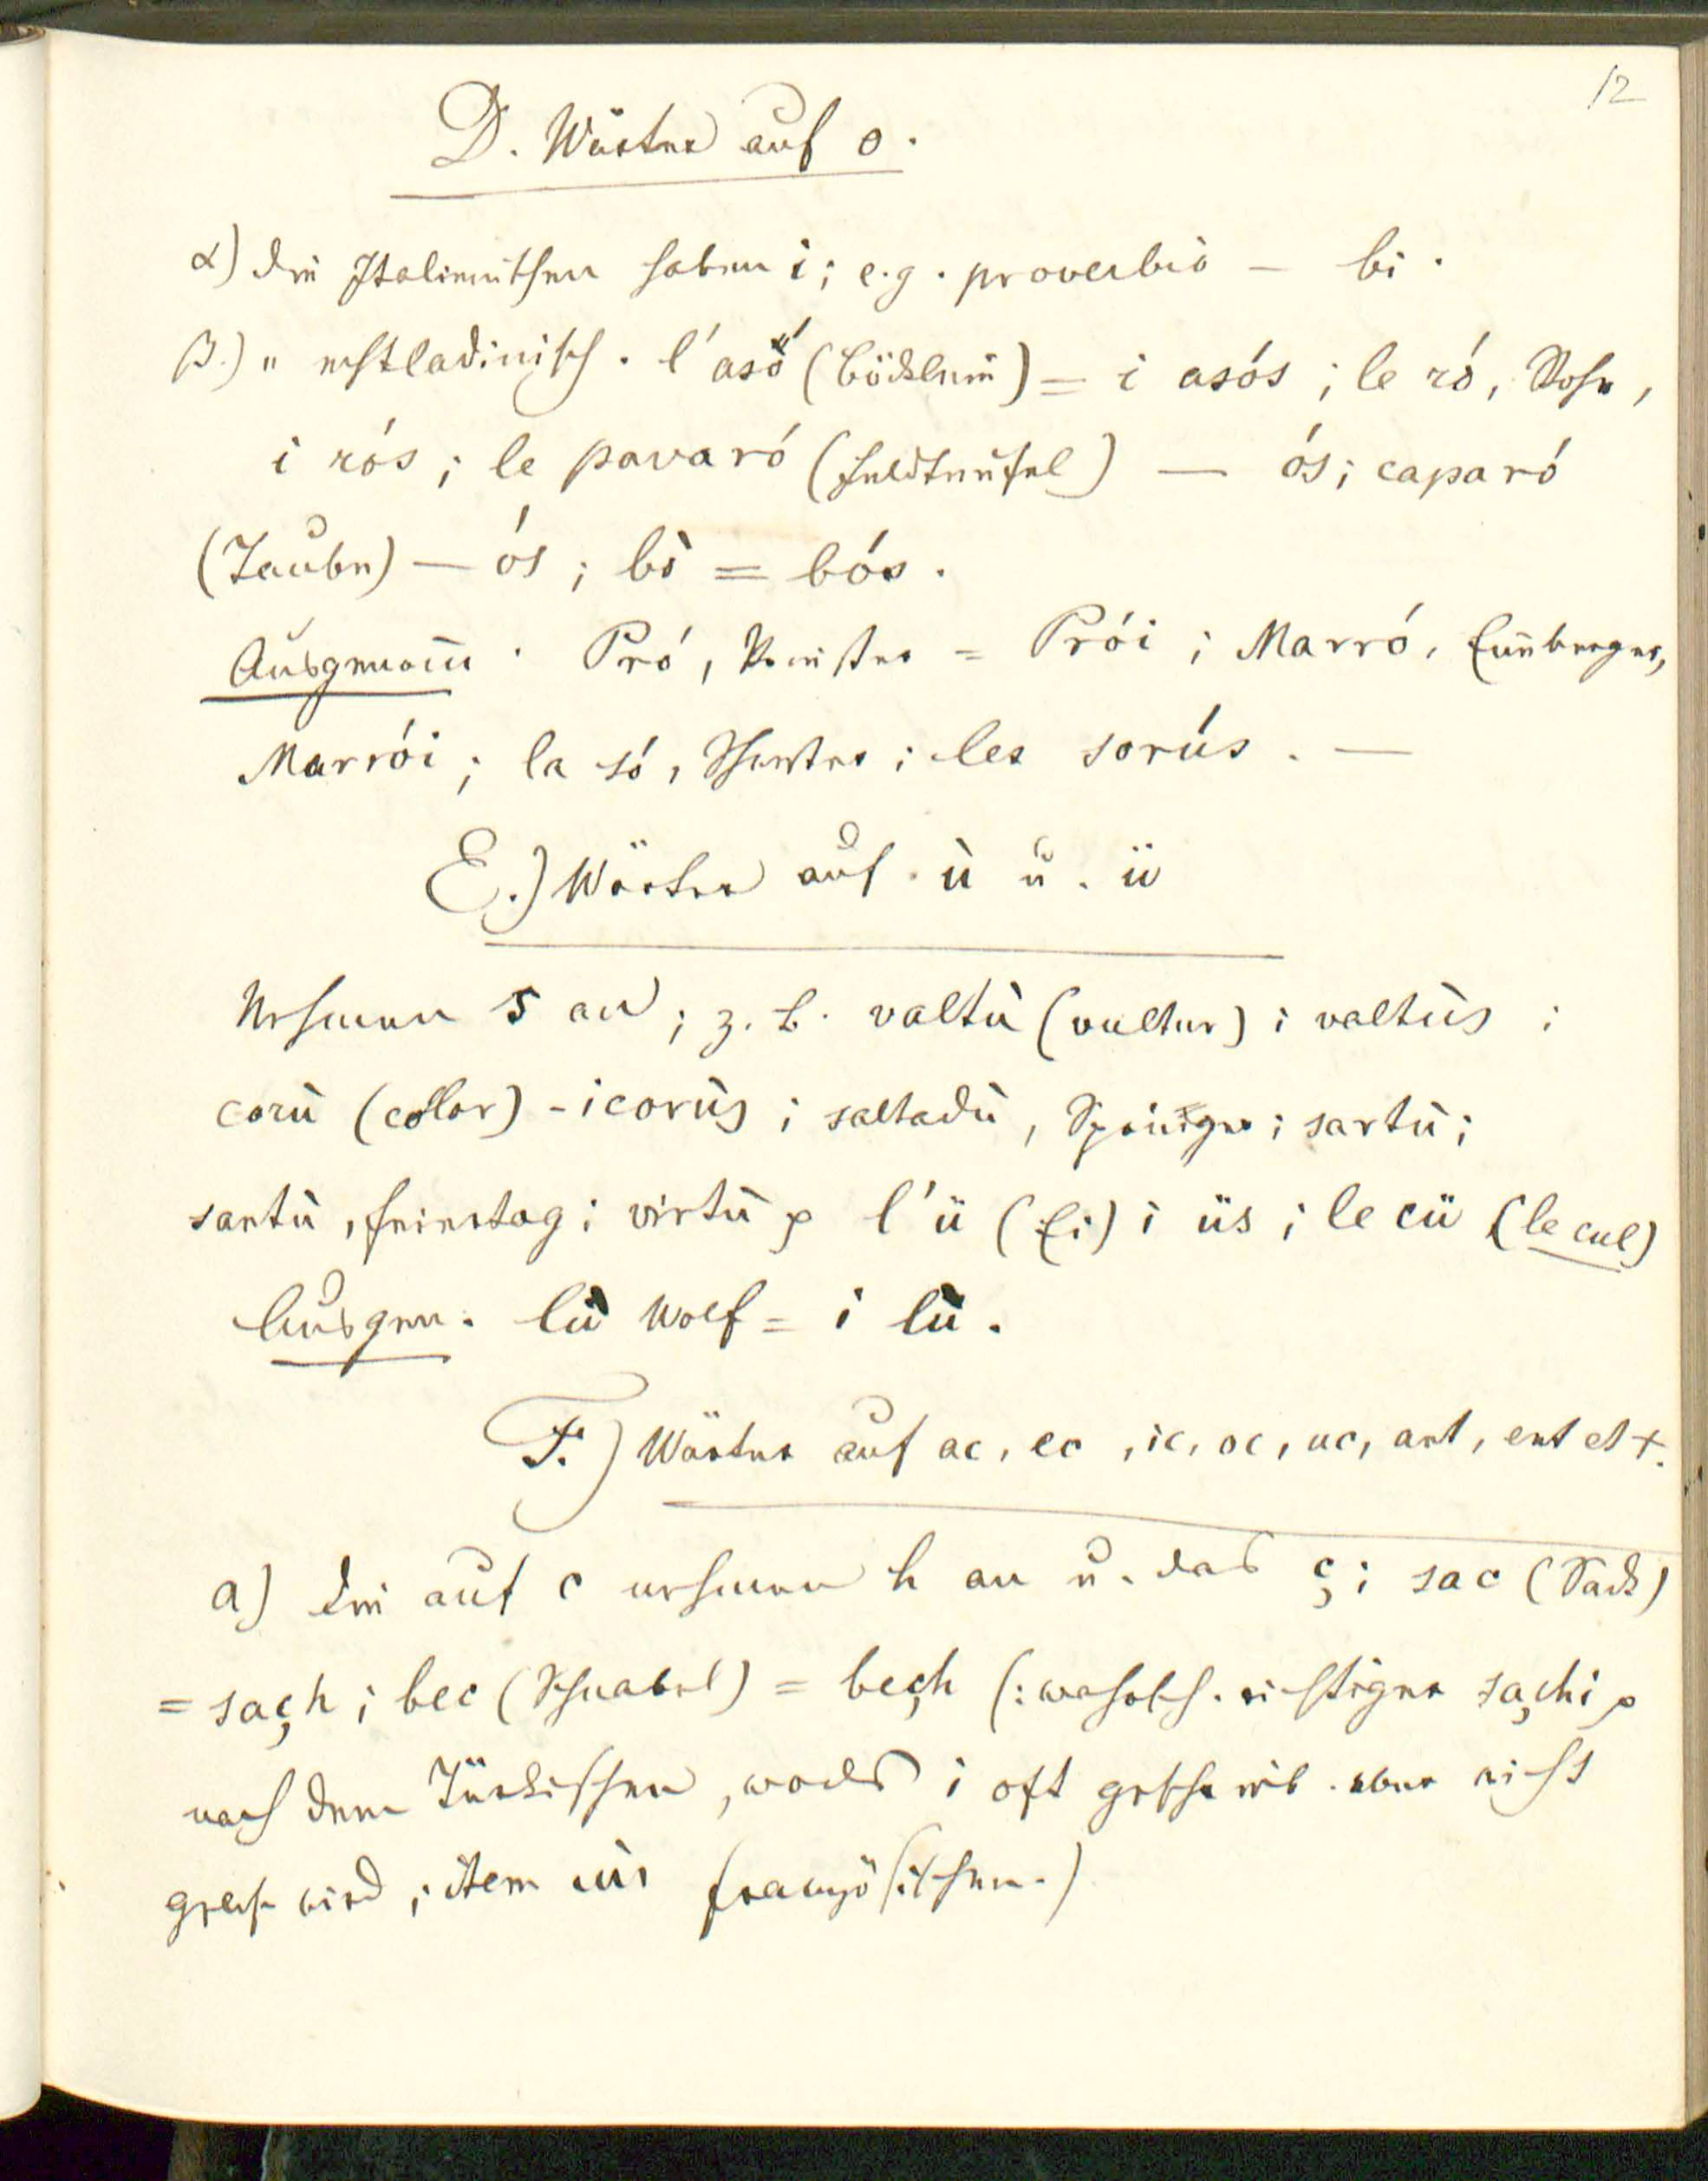 12
D. Wörter auf o.
α) die Italienischen haben i; e.g. proverbio – bi.
β.) " echtladinisch. l'asö́ (Böcklein) = i asós; le ró, Rose,
i rós; le pavaró (Feldteufel) — ós; caparó
(Taube) — ós; bò = bós.
Ausgenom̅. Pró, Priester = Prói; Marró, Enneberger,
Marrói; la só, Schwester; les sorús. —
E.) Wörter auf ù u. ü
nehmen s an; z. B. valtù (vultur) i valtùs;
corù (color) - i corùs; saltadù, Springer; sartù;
santù, Feiertag; virtù p l'ü (Ei) i üs; le cü (le cul)
Ausgen. lù Wolf = i lù.
F.) Wörter auf ac, ec, ic, oc, uc, ant, ent et x.
a) Die auf c nehmen h an u. das ç; sac (Sack)
= saçh; bec (Schnabel) = beçh (: wahrsch. richtiger saçhi p
nach dem Türkischen, wo das i oft geschrieb. aber nicht
geles. wird; item im französischen.)